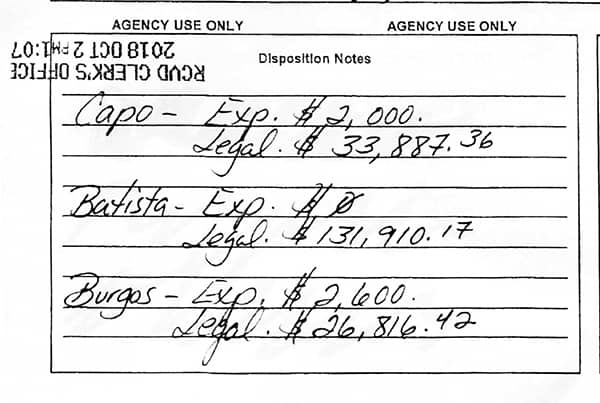 AGENCY USE ONLY AGENCY USE ONLY
2018 OCT 2 PM 1:07
RCVD CLERK'S OFFICE
Disposition Notes
Capo - Exp. $ 2,000.
Legal. $ 33,887.36
Batista - Exp. $ 0
Legal. $ 131,910.17
Burgos - Exp. $ 2,600.
Legal. $ 26,816.42